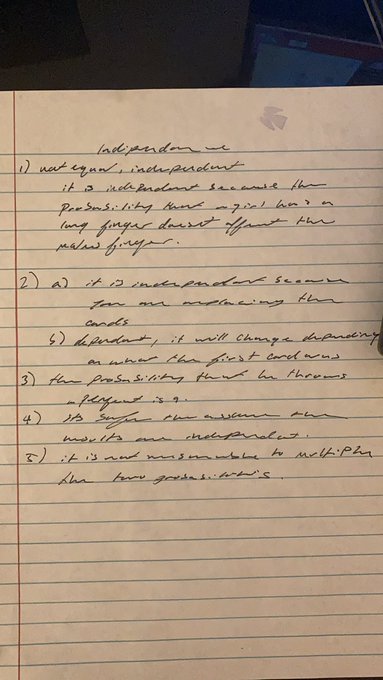 Independance
1) not equal, independent
it is independent because the
probability that a girl has a
long finger doesnt affect the
males finger.
2) a) it is independent because
you are replacing the
cards
b) dependant, it will change depending
on what the first card was
3) the probability that he throws
a perfect is 9.
4) its safe the
results are independent.
5) it is not reasonable to multiply
the two probabilities.